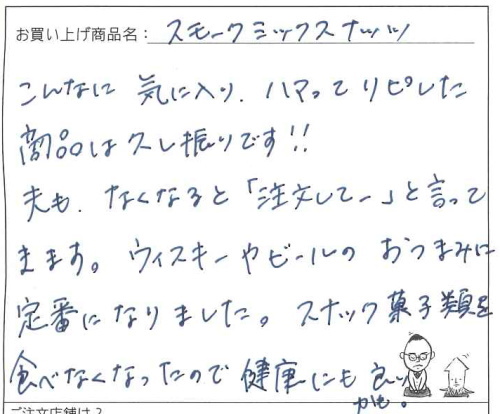 お買い上げ商品名：スモークミックスナッツ
こんなに気に入り、ハマってリピした
商品は久し振りです!!
夫も、なくなると「注文してー」と言って
ます。ウィスキーやビールのおつまみに
定番になりました。スナック菓子類を
食べなくなったので健康にも良い
かも。
ご注文店舗は？